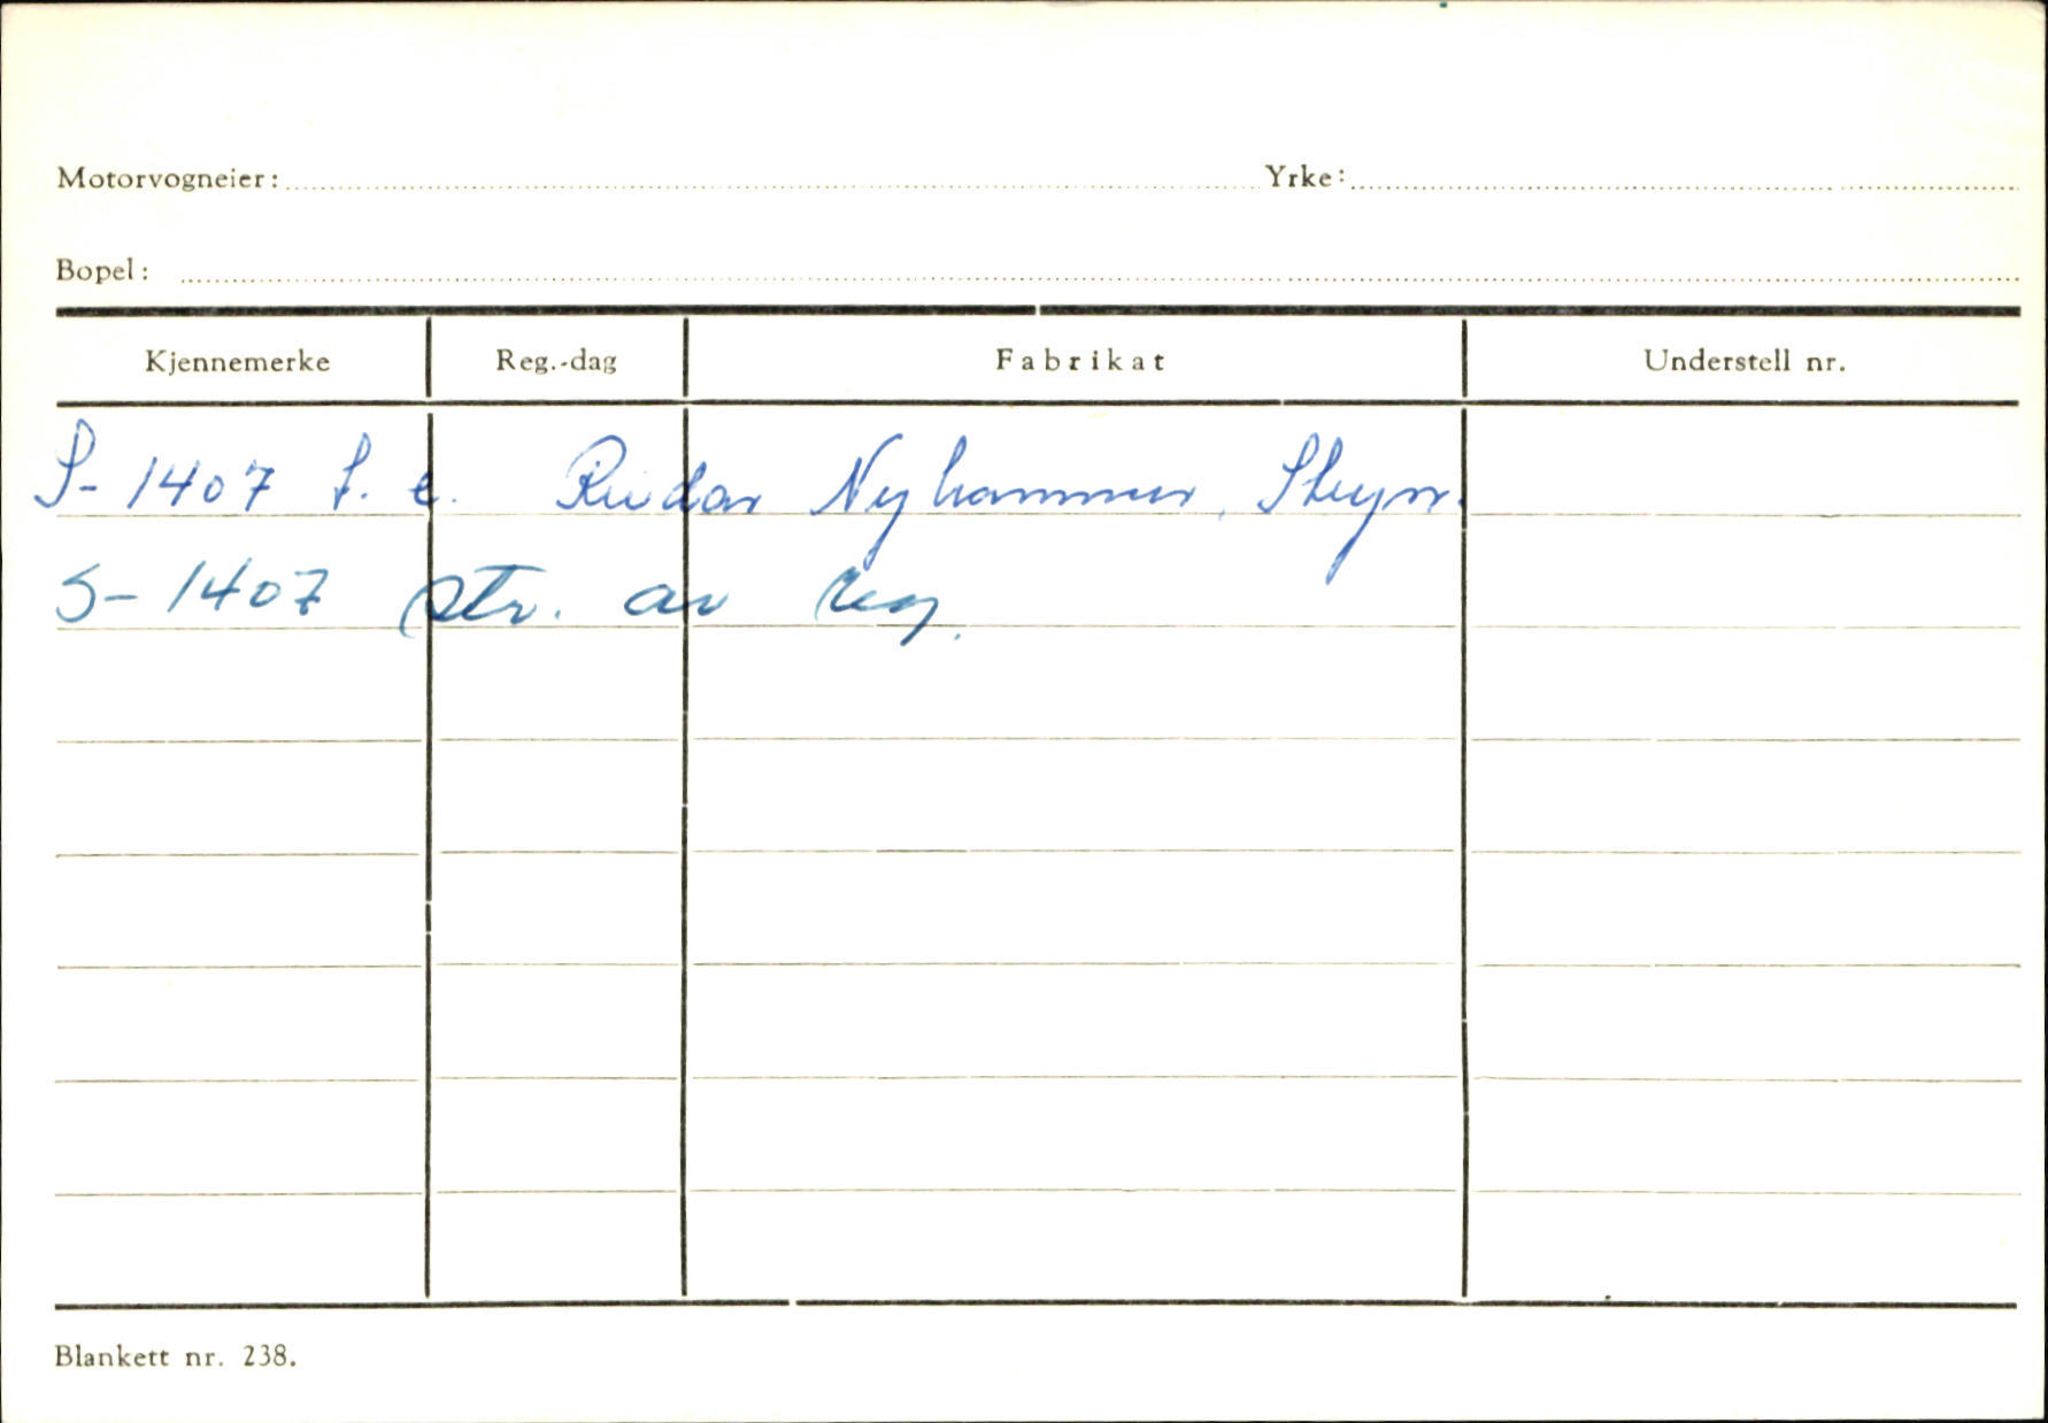 Motorvogneier: Yrke:
Bopel:
Kjennemerke Reg.-dag Fabrikat Understell nr.
S-1407 f. e. Reidar Nyhammer, Stryn.
S-1407 str. av reg.
Blankett nr. 238.